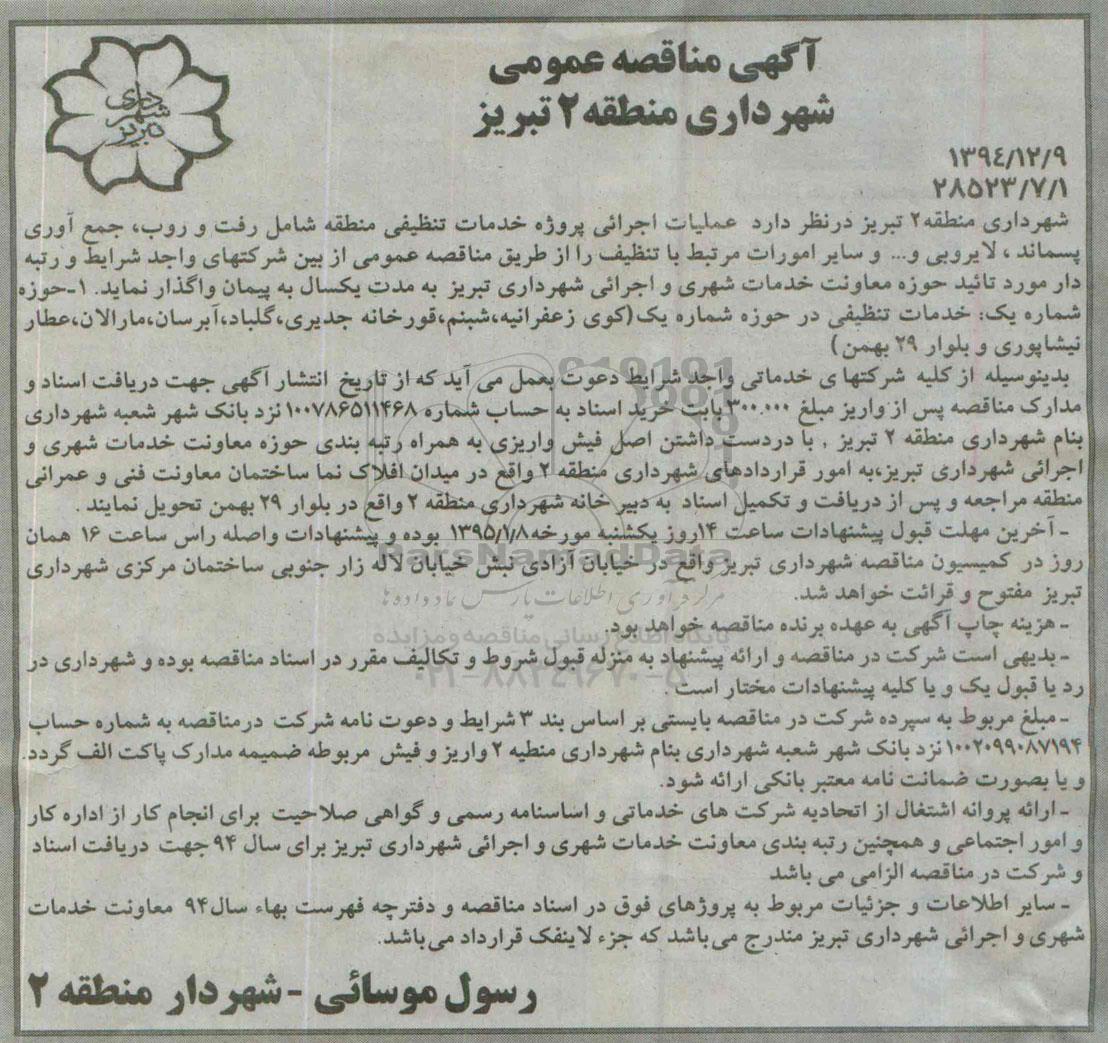 آگهی مناقصه عمومی
شهرداری منطقه ۲ تبریز
شهرداری تبریز
۱۳۹٤/۱۲/۹
۲۸۵۲۳/۷/۱
شهرداری منطقه۲ تبریز درنظر دارد عملیات اجرائی پروژه خدمات تنظیفی منطقه شامل رفت و روب، جمع آوری
پسماند ، لایروبی و... و سایر امورات مرتبط با تنظیف را از طریق مناقصه عمومی از بین شرکتهای واجد شرایط و رتبه
دار مورد تائید حوزه معاونت خدمات شهری و اجرائی شهرداری تبریز به مدت یکسال به پیمان واگذار نماید. ۱-حوزه
شماره یک: خدمات تنظیفی در حوزه شماره یک(کوی زعفرانیه،شبنم،قورخانه جدیری،گلباد،آبرسان،مارالان،عطار
نیشاپوری و بلوار ۲۹ بهمن)
بدینوسیله از کلیه شرکتها ی خدماتی واجد شرایط دعوت بعمل می آید که از تاریخ انتشار آگهی جهت دریافت اسناد و
مدارک مناقصه پس از واریز مبلغ ۳۰۰.۰۰۰ بابت خرید اسناد به حساب شماره ۱۰۰۷۸۶۵۱۱۴۶۸ نزد بانک شهر شعبه شهرداری
بنام شهرداری منطقه ۲ تبریز , با دردست داشتن اصل فیش واریزی به همراه رتبه بندی حوزه معاونت خدمات شهری و
اجرائی شهرداری تبریز،به امور قراردادهای شهرداری منطقه ۲ واقع در میدان افلاک نما ساختمان معاونت فنی و عمرانی
منطقه مراجعه و پس از دریافت و تکمیل اسناد به دبیر خانه شهرداری منطقه ۲ واقع در بلوار ۲۹ بهمن تحویل نمایند .
- آخرین مهلت قبول پیشنهادات ساعت ۱۴روز یکشنبه مورخه۱۳۹۵/۱/۸ بوده و پیشنهادات واصله راس ساعت ۱۶ همان
روز در کمیسیون مناقصه شهرداری تبریز واقع در خیابان آزادی نبش خیابان لاله زار جنوبی ساختمان مرکزی شهرداری
تبریز مفتوح و قرائت خواهد شد.
- هزینه چاپ آگهی به عهده برنده مناقصه خواهد بود.
- بدیهی است شرکت در مناقصه و ارائه پیشنهاد به منزله قبول شروط و تکالیف مقرر در اسناد مناقصه بوده و شهرداری در
رد یا قبول یک و یا کلیه پیشنهادات مختار است .
- مبلغ مربوط به سپرده شرکت در مناقصه بایستی بر اساس بند ۳ شرایط و دعوت نامه شرکت درمناقصه به شماره حساب
۱۰۰۲۰۹۹۰۸۷۱۹۴ نزد بانک شهر شعبه شهرداری بنام شهرداری منطیه ۲ واریز و فیش مربوطه ضمیمه مدارک پاکت الف گردد.
و یا بصورت ضمانت نامه معتبر بانکی ارائه شود.
- ارائه پروانه اشتغال از اتحادیه شرکت های خدماتی و اساسنامه رسمی و گواهی صلاحیت برای انجام کار از اداره کار
و امور اجتماعی و همچنین رتبه بندی معاونت خدمات شهری و اجرائی شهرداری تبریز برای سال ۹۴ جهت دریافت اسناد
و شرکت در مناقصه الزامی می باشد
- سایر اطلاعات و جزئیات مربوط به پروژهای فوق در اسناد مناقصه و دفترچه فهرست بهاء سال۹۴ معاونت خدمات
شهری و اجرائی شهرداری تبریز مندرج می‌باشد که جزء لاینفک قرارداد می‌باشد.
رسول موسائی - شهردار منطقه ۲
ParsNamadData
مرکز فرآوری اطلاعات پارس نماد داده ها
پایگاه اطلاع رسانی مناقصه و مزایده
۰۲۱-۸۸۳۴۹۶۷۰-۵